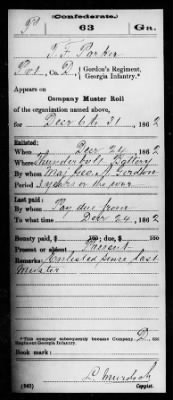 (Confederate.)
P 63 Ga.
T. F. Parker
Pvt., Co. D, Gordon's Regiment, Georgia Infantry.*
Appears on
Company Muster Roll
of the organization named above,
for Decr 6 to 31, 1862
Enlisted:
When Decr 24, 1862
Where Thunderbolt Battery
By whom Maj Geo A Gordon
Period 3 years or the war
Last paid:
By whom Pay due from
To what time Decr 24, 1862
Bounty paid, $ 50; due, $ 100
Present or absent Present
Remarks: Enlisted since last
Muster
*This company subsequently became Company D, 63d
Regiment Georgia Infantry.
Book mark:
L. Murdoch
(642) Copyist.